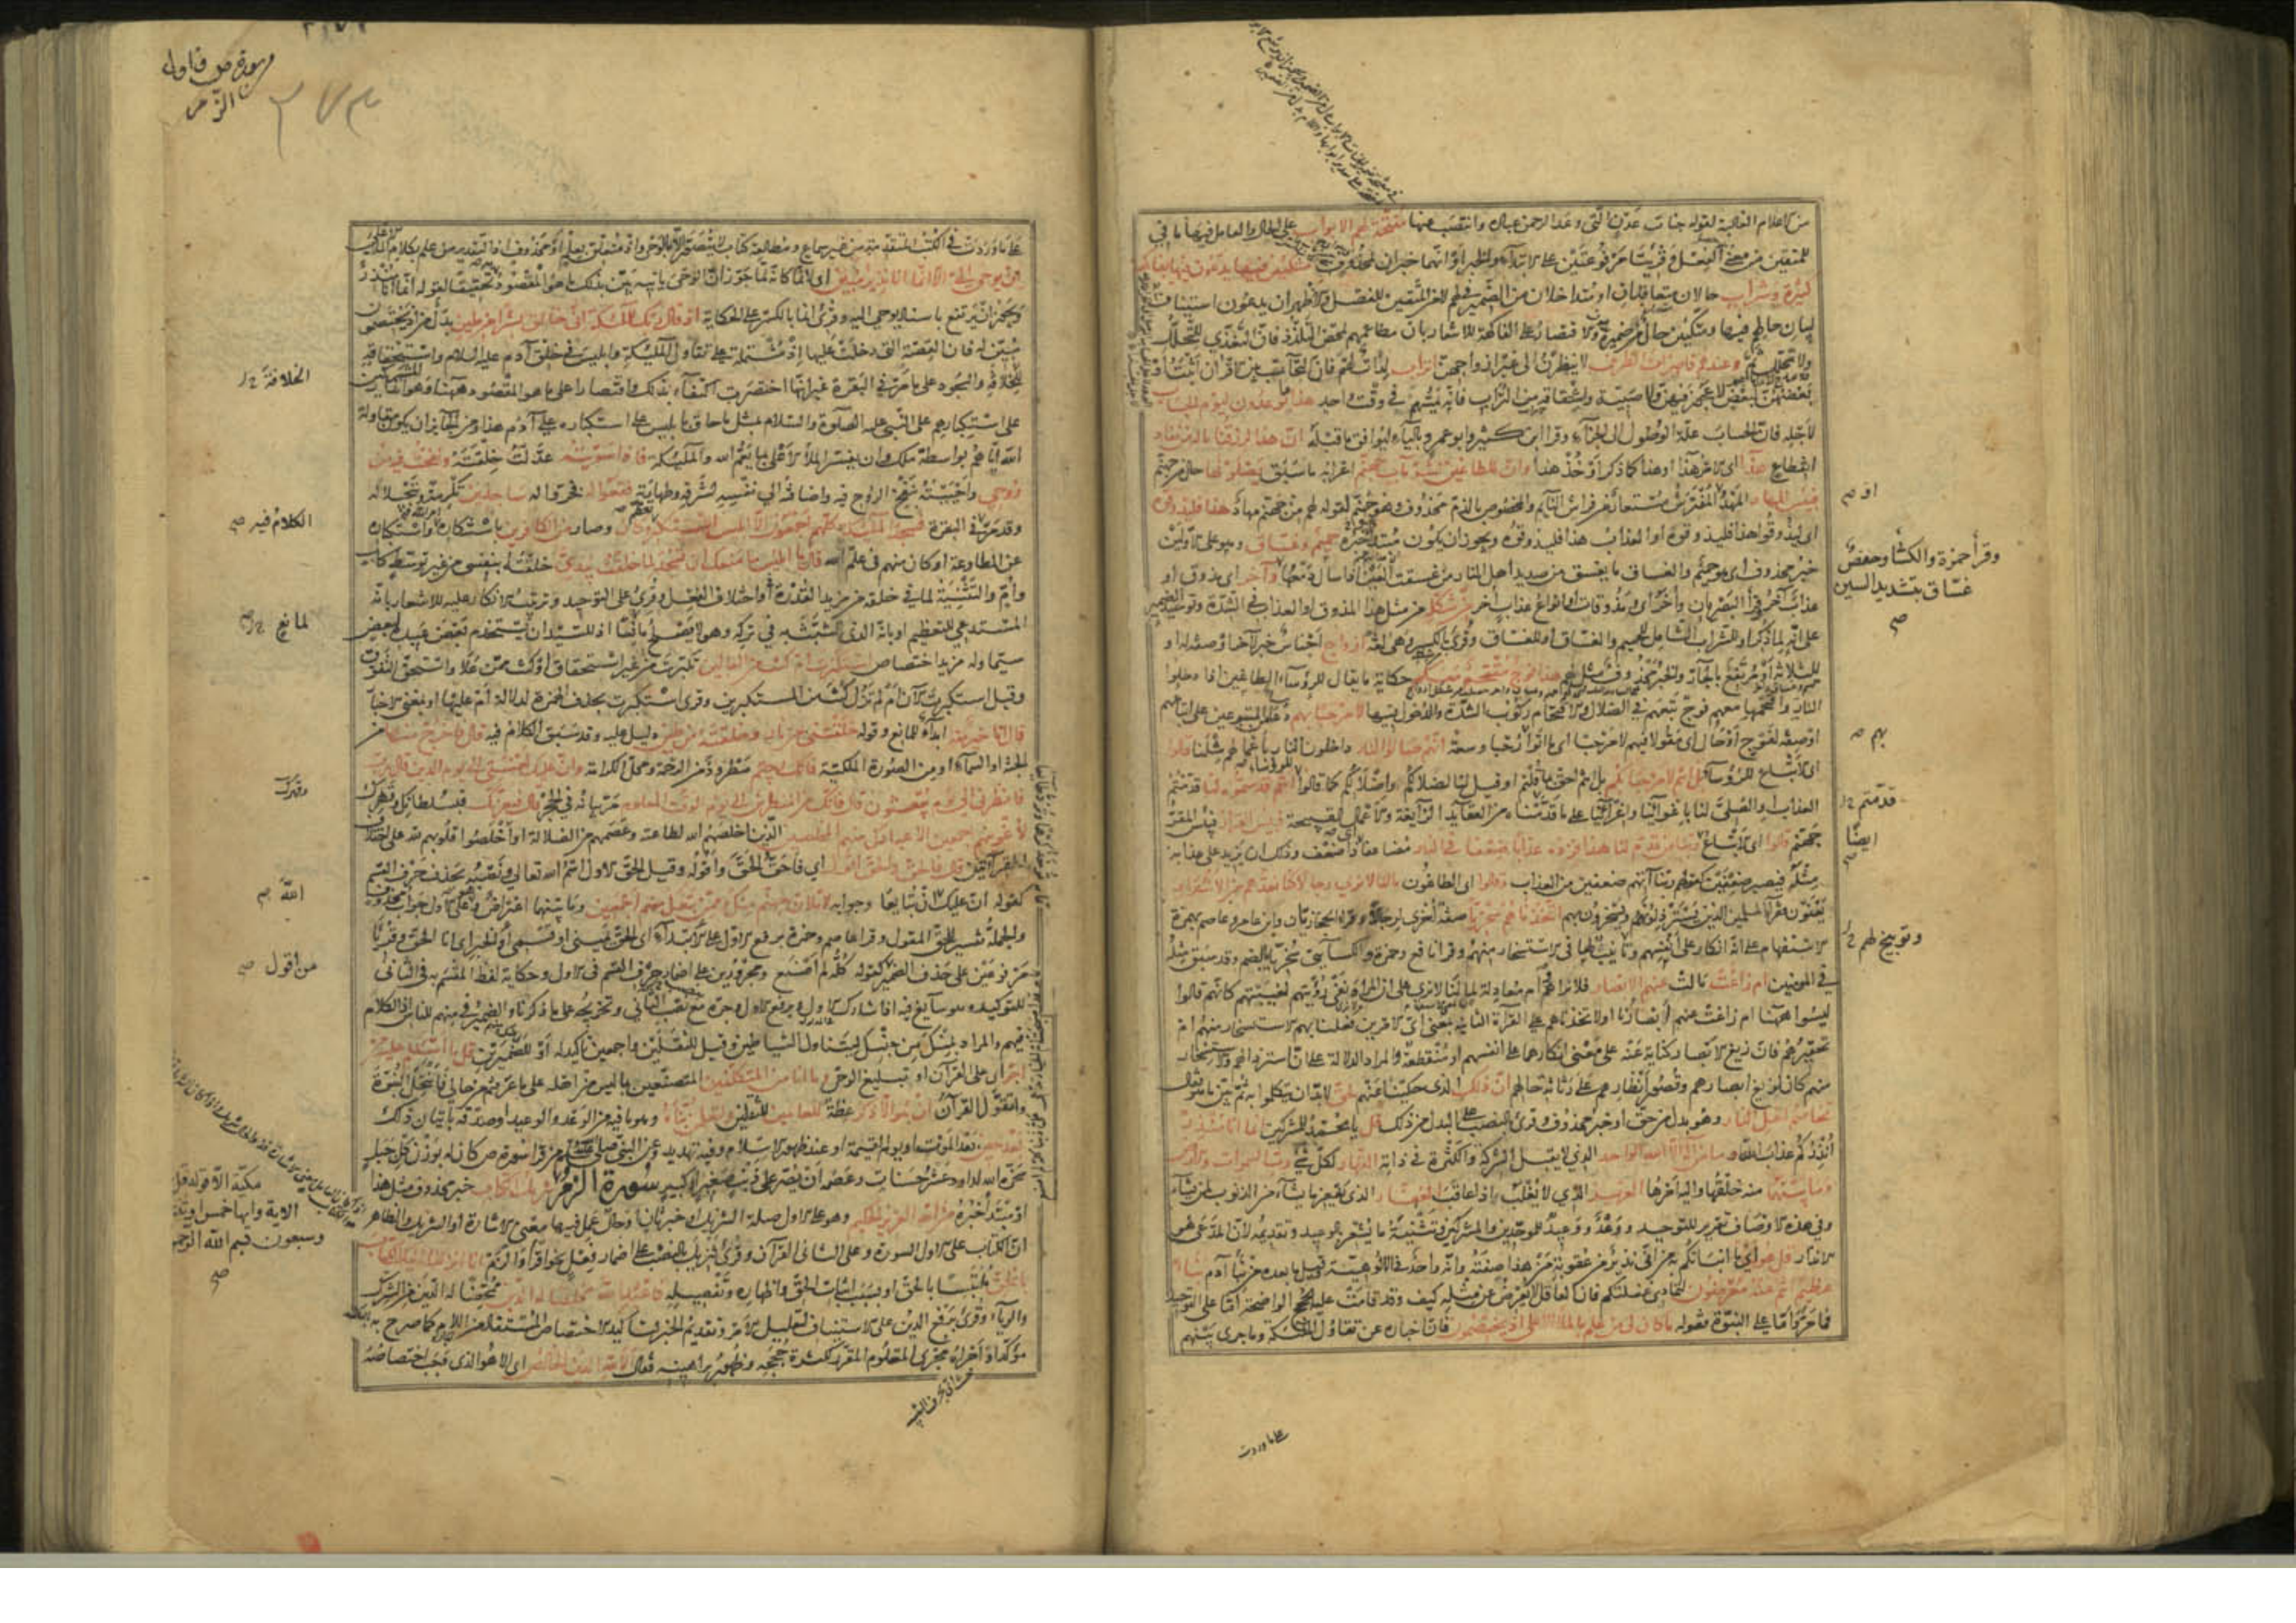 من الاعلام الغالبة لقوله جنات عدن التى وعد الرحمن عباده وانتصب عنها مفتحة لهم الابواب على الحال والعامل فيها ما فى
للمتقين من معنى الفعل وقرئتا مرفوعتين على الابتداء والخبر او انهما خبران لمحذوف متكئين فيها يدعون فيها بفاكهة
كثيرة وشراب حالان متعاقبان او متداخلان من الضمير فى لهم لا من المتقين للفصل والاظهر ان يدعون استيناف
لبيان حالهم فيها ومتكئين حال من ضميره والاقتصار على الفاكهة للاشعار بان مطاعمهم لمحض التلذذ فان التغذى للتحلل
ولا تحلل ثمة وعندهم قاصرات الطرف لا ينظرن الى غير ازواجهن اتراب لدات لهم فان التحاب بين الاقران اثبت او
بعضهن لبعض لا عجوز فيهن ولا صبية واشتقاقه من التراب فانه يمسهم فى وقت واحد هذا ما توعدون ليوم الحساب
لاجله فان الحساب علة الوصول الى الجزاء وقرا ابن كثير وابو عمرو بالياء ليوافق ما قبله ان هذا لرزقنا ما له من نفاد
انقطاع هذا اى الامر هذا او هذا كما ذكر او خذ هذا وان للطاغين لشر مآب جهنم اعرابه ما سبق يصلونها حال من جهنم
فبئس المهاد المهد المفترش مستعار من فراش النائم والمخصوص بالذم محذوف وهو جهنم لقوله لهم من جهنم مهاد هذا فليذوقوه
اى ليذوقوا هذا فليذوقوه او العذاب هذا فليذوقوه ويجوز ان يكون مبتدا خبره حميم وغساق وهو على الاولين
خبر محذوف اى هو حميم والغساق ما يغسق من صديد اهل النار من غسقت العين اذا سال دمعها وآخر اى مذوق او
عذاب آخر وقرأ البصريان وأخر اى ومذوقات او انواع عذاب اخر من شكله من مثل هذا المذوق او العذاب فى الشدة وتوحيد الضمير
على انه لما ذكر او للشراب الشامل للحميم والغساق او للغساق وقرئ بالكسر وهى لغة ازواج اجناس خبر لآخر او صفة له او
للثلاثة او مرتفع بالجار والخبر محذوف مثل لهم هذا فوج مقتحم معكم حكاية ما يقال للرؤساء الطاغين اذا دخلوا
النار واقتحمها معهم فوج تبعهم فى الضلال والاقتحام ركوب الشدة والدخول فيها لا مرحبا بهم دعاء من المتبوعين على اتباعهم
او صفة لفوج او حال اى مقولا فيهم لا مرحبا اى ما اتوا رحبا وسعة انهم صالوا النار داخلون النار باعمالهم مثلنا قالوا
اى الاتباع للرؤساء بل انتم لا مرحبا بكم بل انتم احق بما قلتم او قيل لنا لضلالكم واضلالكم كما قالوا انتم قدمتموه لنا قدمتم
العذاب او الصلى لنا باغوائنا واغرائنا على ما قدمتناه من العقائد الزائغة والاعمال القبيحة فبئس القرار فبئس المقر
جهنم قالوا اى الاتباع ربنا من قدم لنا هذا فزده عذابا ضعفا فى النار مضاعفا اى ذا ضعف وذلك ان يزيد على عذابه
مثله فيصير ضعفين كقوله ربنا آتهم ضعفين من العذاب وقالوا اى الطاغون ما لنا لا نرى رجالا كنا نعدهم من الاشرار
يعنون فقراء المسلمين الذين يسترذلونهم ويسخرون بهم اتخذناهم سخريا صفة اخرى لرجالا وقراه الحجازيان وابن عامر وعاصم بهمزة
الاستفهام على انه انكار على انفسهم وتأنيب لها فى الاستسخار منهم وقرا نافع وحمزة والكسائى سخريا بالضم وقد سبق مثله
فى المومنين ام زاغت مالت عنهم الابصار فلا نراهم وام معادلة لما لنا لا نرى على ان المراد نفى رؤيتهم لغيبتهم كانهم قالوا
ليسوا ههنا ام زاغت عنهم ابصارنا او لاتخذناهم على القراة الثانية بمعنى اى الامرين فعلنا بهم الاستسخار منهم ام
تحقيرهم فان زيغ الابصار كناية عنه على معنى انكارهما على انفسهم او منقطعة والمراد الدلالة على ان استرذالهم والاستسخار
منهم كان لزيغ ابصارهم وقصور انظارهم على رثاثة حالهم ان ذلك الذى حكينا عنهم لحق لا بد ان يتكلموا به ثم بين ما هو فقال
تخاصم اهل النار وهو بدل من حق او خبر محذوف وقرئ بالنصب على البدل من ذلك قل يا محمد للمشركين انما انا منذر
انذركم عذاب الله وما من اله الا الله الواحد الذى لا يقبل الشركة والكثرة فى ذاته القهار لكل شئ رب السموات والارض
وما بينهما منه خلقها واليه امرها العزيز الذى لا يغلب اذا عاقب الغفار الذى يغفر ما يشاء من الذنوب لمن يشاء
وفى هذه الاوصاف تقرير للتوحيد ووعد ووعيد للموحدين والمشركين وتثنية ما يشعر بالوعيد وتقديمه لان المدعى هو
الانذار قل هو اى ما انبأتكم به من انى نذير من عقوبة من هذا صفته وانه واحد فى الالوهية وقيل ما بعده من نبأ آدم نبأ
عظيم انتم عنه معرضون لتمادى غفلتكم فان العاقل لا يعرض عن مثله كيف وقد قامت عليه الحجج الواضحة اما على التوحيد
فما مر واما على النبوة فقوله ما كان لى من علم بالملأ الاعلى اذ يختصمون فان اخباره عن تقاول الملئكة وما جرى بينهم
او صح
وقرأ حمزة والكسائى وحفص
غساق بتشديد السين
صح
بهم صح
قدمتم
ايضا
وتوبيخ لهم
على ما وردت
سورة ص واول
الزمر
على ما وردت فى الكتب المتقدمة من غير سماع ومطالعة كتاب لا يتصور الا بالوحى واذ متعلق بعلم او بمحذوف اذ التقدير من علم بكلام الملأ
ان يوحى الى الا انما انا نذير مبين اى لانما كانه لما جوز ان الوحى ياتيه بين بذلك ما هو المقصود تحقيقا لقوله انما انا منذر
ويجوز ان يرتفع باسناد يوحى اليه وقرئ انما بالكسر على الحكاية اذ قال ربك للملئكة انى خالق بشرا من طين بدل من اذ يختصمون
مبين له فان القصة التى دخلت عليها اذ مشتملة على تقاول الملئكة وابليس فى خلق آدم عليه السلام واستحقاقه
للخلافة والسجود على ما مر فى البقرة غير انها اختصرت اكتفاء بذلك واقتصارا على ما هو المقصود ههنا وهو انذار المشركين
على استكبارهم على النبى عليه الصلوة والسلام بمثل ما حاق بابليس على استكباره على آدم هذا ومن الجائز ان يكون مقاولة
الله اياهم بواسطة ملك وان يفسر الملأ الاعلى بما يعم الله والملئكة فاذا سويته عدلت خلقته ونفخت فيه من
روحى واحييته بنفخ الروح فيه واضافته الى نفسه لشرفه وطهارته فقعوا له فخروا له ساجدين تكرمة وتبجيلا له
وقد مر فى البقرة فسجد الملئكة كلهم اجمعون الا ابليس استكبر وكان وصار من الكافرين باستكباره واستنكاره
عن المطاوعة او كان منهم فى علم الله قال يا ابليس ما منعك ان تسجد لما خلقت بيدى خلقته بنفسى من غير توسط كاب
وام والتثنية لما فى خلقه من مزيد القدرة او اختلاف الفعل وقرئ على التوحيد وترتيب الانكار عليه للاشعار بانه
المستدعى للتعظيم او بانه الذى تشبث به فى تركه وهو لا يصلح مانعا اذ للسيد ان يستخدم بعض عبيده لبعض
سيما وله مزيد اختصاص استكبرت ام كنت من العالين تكبرت من غير استحقاق او كنت ممن علا واستحق التفوق
وقيل استكبرت الآن ام لم تزل كنت من المستكبرين وقرئ استكبرت بحذف الهمزة لدلالة ام عليها او بمعنى الاخبار
قال انا خير منه ابداء للمانع وقوله خلقتنى من نار وخلقته من طين دليل عليه وقد سبق الكلام فيه قال فاخرج منها من
الجنة او السماء او من الصورة الملكية فانك رجيم مطرود من الرحمة ومحل الكرامة وان عليك لعنتى الى يوم الدين قال رب
فانظرنى الى يوم يبعثون قال فانك من المنظرين الى يوم الوقت المعلوم مر بيانه فى الحجر قال فبعزتك فبسلطانك وقهرك
لاغوينهم اجمعين الا عبادك منهم المخلصين الذين اخلصهم الله لطاعته وعصمهم من الضلالة او اخلصوا قلوبهم لله على اختلاف
القراءتين قال فالحق والحق اقول اى فاحق الحق واقوله وقيل الحق الاول اسم الله تعالى ونصبه بحذف حرف القسم
كقوله ان عليك الله ان تبايعا وجوابه لاملان جهنم منك وممن تبعك منهم اجمعين وما بينهما اعتراض وهو على الاول جواب محذوف
والجملة تفسير للحق المقول وقرا عاصم وحمزة برفع الاول على الابتداء اى الحق يمينى او قسمى او الخبر اى انا الحق وقرئا
مرفوعين على حذف الضمير كقوله كله لم اصنع ومجرورين على اضمار حرف القسم فى الاول وحكاية لفظ المقسم به فى الثانى
للتوكيد وهو سائغ فيه اذا شارك الاول وبرفع الاول وجره مع نصب الثانى وتخريجه على ما ذكرناه والضمير فى منهم للناس اذ الكلام
فيهم والمراد بمنك من جنسك ليتناول الشياطين وقيل للثقلين واجمعين تأكيد له او للضميرين قل ما اسئلكم عليه من
اجر اى على القرآن او تبليغ الوحى وما انا من المتكلفين المتصنعين بما ليس من اهله على ما عرفتم من حالى فانتحل النبوة
واتقول القرآن ان هو الا ذكر عظة للعالمين للثقلين ولتعلمن نبأه وهو ما فيه من الوعد والوعيد او صدقه باتيان ذلك
بعد حين بعد الموت او يوم القيمة او عند ظهور الاسلام وفيه تهديد عن النبى صلى الله عليه من قرا سورة ص كان له بوزن كل جبل
سخره الله لداود عشر حسنات وعصمه ان يصر على ذنب صغير او كبير سورة الزمر تنزيل الكتاب خبر محذوف مثل هذا
او مبتدأ خبره من الله العزيز الحكيم وهو على الاول صلة التنزيل او خبر ثان او حال عمل فيها معنى الاشارة او التنزيل والظاهر
ان الكتاب على الاول السورة وعلى الثانى القرآن وقرئ تنزيل بالنصب على اضمار فعل نحو اقرأ او الزم انا انزلنا اليك الكتاب
بالحق ملتبسا بالحق او بسبب اثبات الحق واظهاره وتفصيله فاعبد الله مخلصا له الدين ممحضا له الدين من الشرك
والرياء وقرئ برفع الدين على الاستيناف لتعليل الامر وتقديم الخبر لتاكيد الاختصاص المستفاد من اللام كما صرح به
مؤكدا واجراه مجرى المعلوم المقرر لكثرة حججه وظهور براهينه فقال الا لله الدين الخالص اى الا هو الذى وجب اختصاصه
الخلافة
الكلام فيه صح
لمانع
وقهرك
الله
من اقول صح
مكية الا قوله قل
الاية وايها خمس او ثنتان
وسبعون بسم الله الرحمن
صح